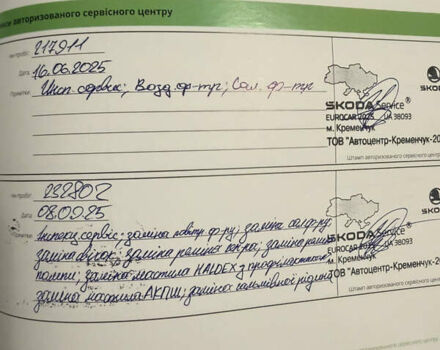 ітки авторизованого сервісного центру
Км пробіг 217911
Дата 16.06.2025
Примітки Інсп. сервіс; Возд. ф-тр; Сал. ф-тр
SKODA Service®
EUROCAR 2025 UA 38093
м. Кременчук
ТОВ "Автоцентр-Кременчук-20
Штамп авторизованого сервісного центру
SKO
Км пробіг 232802
Дата 08.09.25
інспекц. сервіс; заміна повітр. ф-ру; заміна сал. ф-ру;
заміна свічок; заміна ременя пояра; заміна ременя
помпи; заміна мастила HALDEX з профілактикою
заміна мастила АКПП; заміна гальмівної рідини
SKODA Service
EUROCAR 38093
м. Кременчук
ТОВ "Автоцентр-Кременчук-20
Штамп авторизованого сервісного
SKO